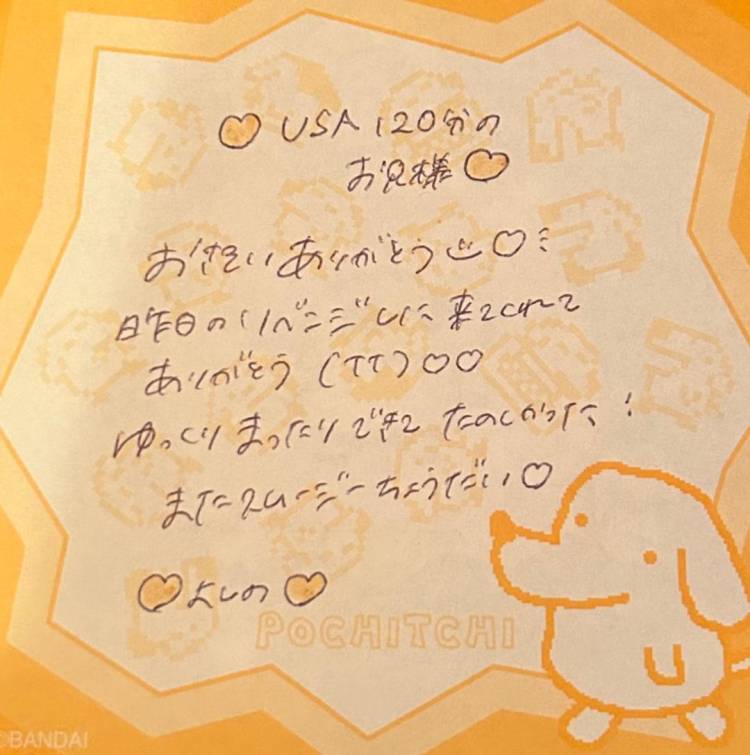 ♡ USA 120分の
お兄様♡
おさそいありがとう ♡
昨日のリベンジしに来てくれて
ありがとう (TT)♡♡
ゆっくりまったりできてたのしかった!
またスムージーちょうだい♡
♡よしの♡
POCHITCHI
©BANDAI